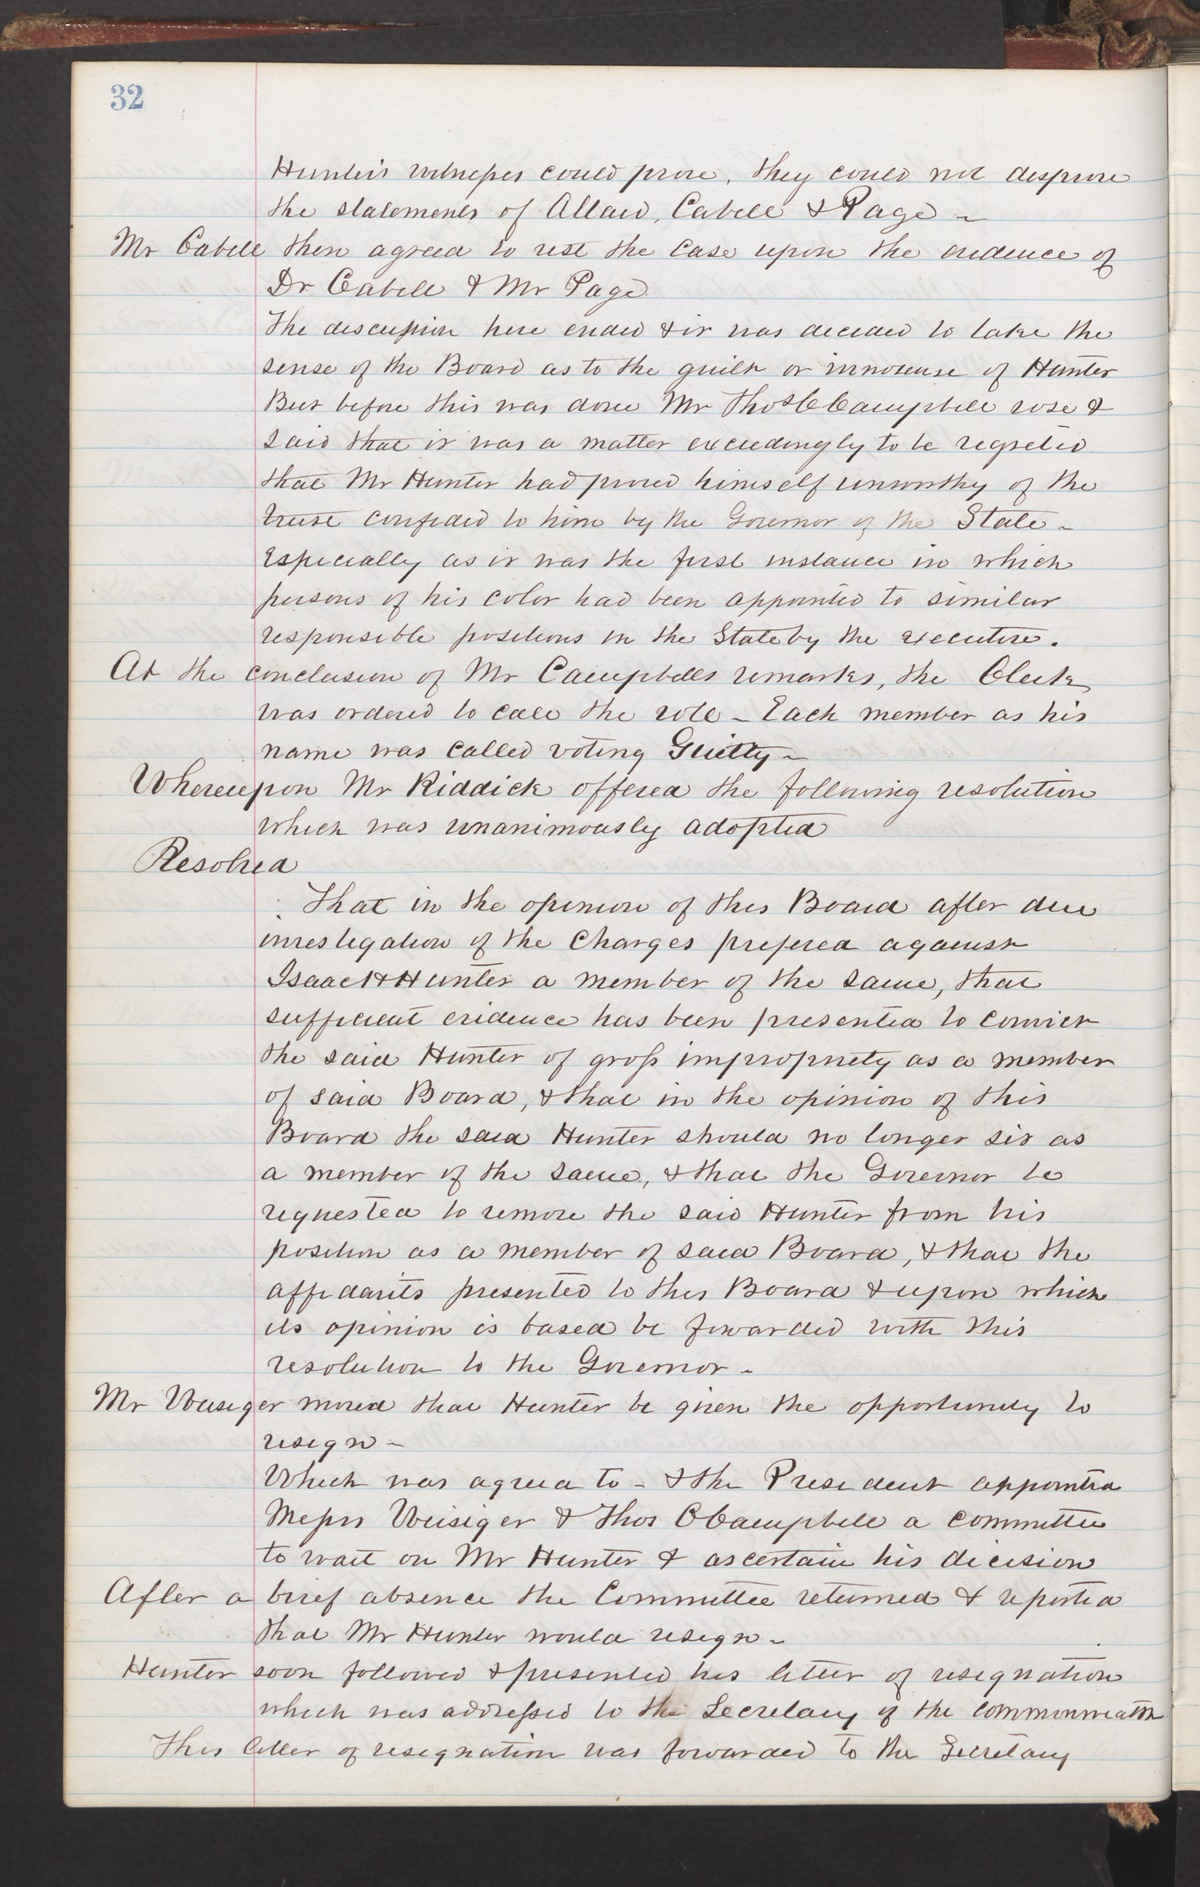 32
Hunter's witnesses could prove, they could not disprove
the statements of Allan, Cabell & Page -
Mr Cabell then agreed to rest the case upon the evidence of
Dr Cabell & Mr Page
The discussion here ended & it was decided to take the
sense of the Board as to the guilt or innocense of Hunter
But before this was done Mr Thos C Campbell rose &
said that it was a matter exceedingly to be regretted
that Mr Hunter had proved himself unworthy of the
trust confided to him by the Governor of the State -
Especially as it was the first instance in which
persons of his color had been appointed to similar
responsible positions in the State by the executive.
At the conclusion of Mr Campbells remarks, the Clerk
was ordered to call the role - Each member as his
name was called voting Guilty -
Whereupon Mr Riddick offered the following resolution
which was unanimously adopted
Resolved
: That in the opinion of this Board after due
investigation of the Charges prefered against
Isaac H Hunter a member of the same, that
sufficient evidence has been presented to convict
the said Hunter of gross impropriety as a member
of said Board, & that in the opinion of this
Board the said Hunter should no longer sit as
a member of the same, & that the Governor be
requested to remove the said Hunter from his
position as a member of said Board, & that the
affidavits presented to this Board & upon which
its opinion is based be forwarded with this
resolution to the Governor -
Mr Weisiger moved that Hunter be given the opportunity to
resign -
Which was agreed to - & the President appointed
Messrs Weisiger & Thos C Campbell a committee
to wait on Mr Hunter & ascertain his dicision
After a brief absence the Committee returned & reported
that Mr Hunter would resign -
Hunter soon followed & presented his letter of resignation
which was addressed to the Secretary of the commonwealth
This letter of resignation was forwarded to the Secretary